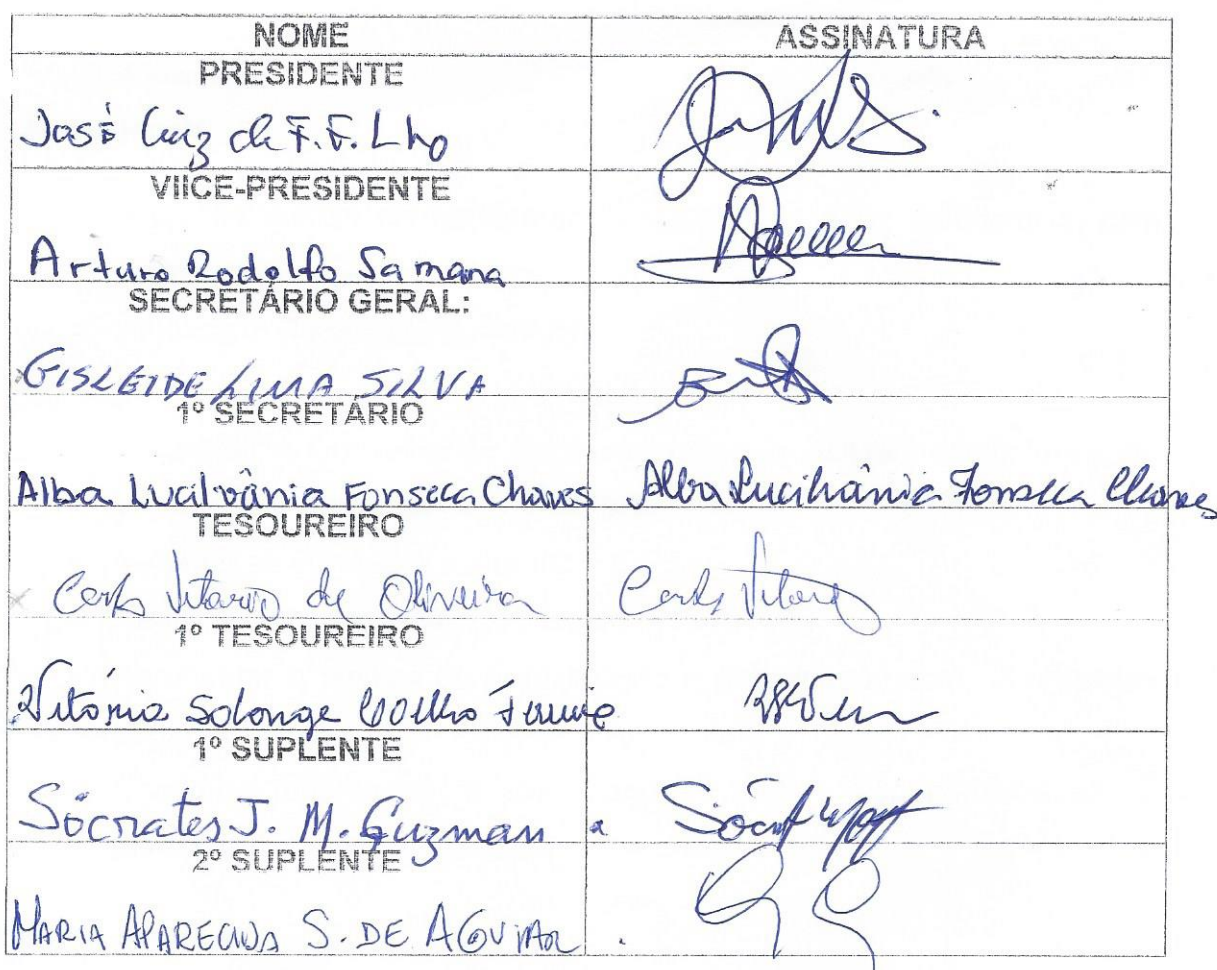 NOME ASSINATURA
PRESIDENTE
José Luiz de F. F. Lho
VIICE-PRESIDENTE
Arturo Rodolfo Samana
SECRETÁRIO GERAL:
GISLEIDE LIMA SILVA
1º SECRETÁRIO
Alba Lucilvânia Fonseca Chaves Alba Lucilvânia Fonseca Chaves
TESOUREIRO
Carlos Vitorio de Oliveira Carlos Vitorio
1º TESOUREIRO
Vitória Solange Coelho Ferreira
1º SUPLENTE
Sócrates J. M. Guzman
2º SUPLENTE
MARIA APARECIDA S. DE AGUIAR